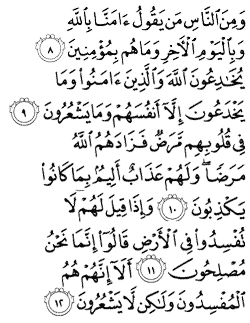 وَمِنَ ٱلنَّاسِ مَن يَقُولُ ءَامَنَّا بِٱللَّهِ
وَبِٱلْيَوْمِ ٱلْأَخِرِ وَمَا هُم بِمُؤْمِنِينَ ٨
يُخَٰدِعُونَ ٱللَّهَ وَٱلَّذِينَ ءَامَنُوا۟ وَمَا
يَخْدَعُونَ إِلَّآ أَنفُسَهُمْ وَمَا يَشْعُرُونَ ٩
فِى قُلُوبِهِم مَّرَضٌ فَزَادَهُمُ ٱللَّهُ
مَرَضًا ۖ وَلَهُمْ عَذَابٌ أَلِيمٌۢ بِمَا كَانُوا۟
يَكْذِبُونَ ١٠ وَإِذَا قِيلَ لَهُمْ لَا
تُفْسِدُوا۟ فِى ٱلْأَرْضِ قَالُوٓا۟ إِنَّمَا نَحْنُ
مُصْلِحُونَ ١١ أَلَآ إِنَّهُمْ هُمُ
ٱلْمُفْسِدُونَ وَلَٰكِن لَّا يَشْعُرُونَ ١٢